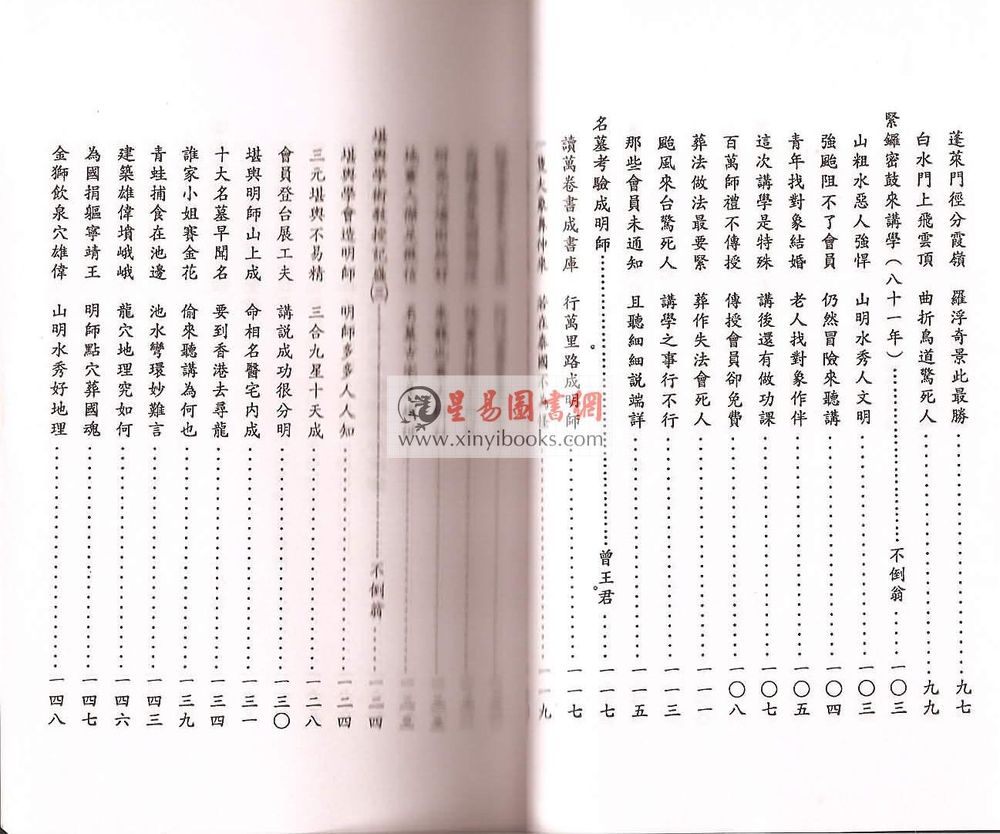 蓬萊門徑分霞嶺　羅浮奇景此最勝……九七
白水門上飛雲頂　曲折鳥道驚死人……九九
緊鑼密鼓來講學（八十一年）……不倒翁……一〇三
山粗水惡人強悍　山明水秀人文明……一〇三
強颱阻不了會員　仍然冒險來聽講……一〇四
青年找對象結婚　老人找對象作伴……一〇五
這次講學是特殊　講後還有做功課……一〇七
百萬師禮不傳授　傳授會員卻免費……一〇八
葬法做法最要緊　葬作失法會死人……一一一
颱風來台驚死人　講學之事行不行……一一三
那些會員未通知　且聽細細說端詳……一一五
名墓考驗成明師……曾王君……一一七
讀萬卷書成書庫　行萬里路成明師……一一七
一一九
堪輿學術教授記盛(三)……不倒翁……一二四
堪輿學會造明師　明師多多人人知……一二四
三元堪輿不易精　三合九星十天成……一二八
會員登台展工夫　講說成功很分明……一三〇
堪輿明師山上成　命相名醫宅內成……一三一
十大名墓早聞名　要到香港去尋龍……一三四
誰家小姐賽金花　偷來聽講為何也……一三九
青蛙捕食在池邊　池水彎環妙難言……一四三
建築雄偉墳峨峨　龍穴地理究如何……一四六
為國捐軀寧靖王　明師點穴葬國魂……一四七
金獅飲泉穴雄偉　山明水秀好地理……一四八
星易圖書網
www.xinyibooks.com